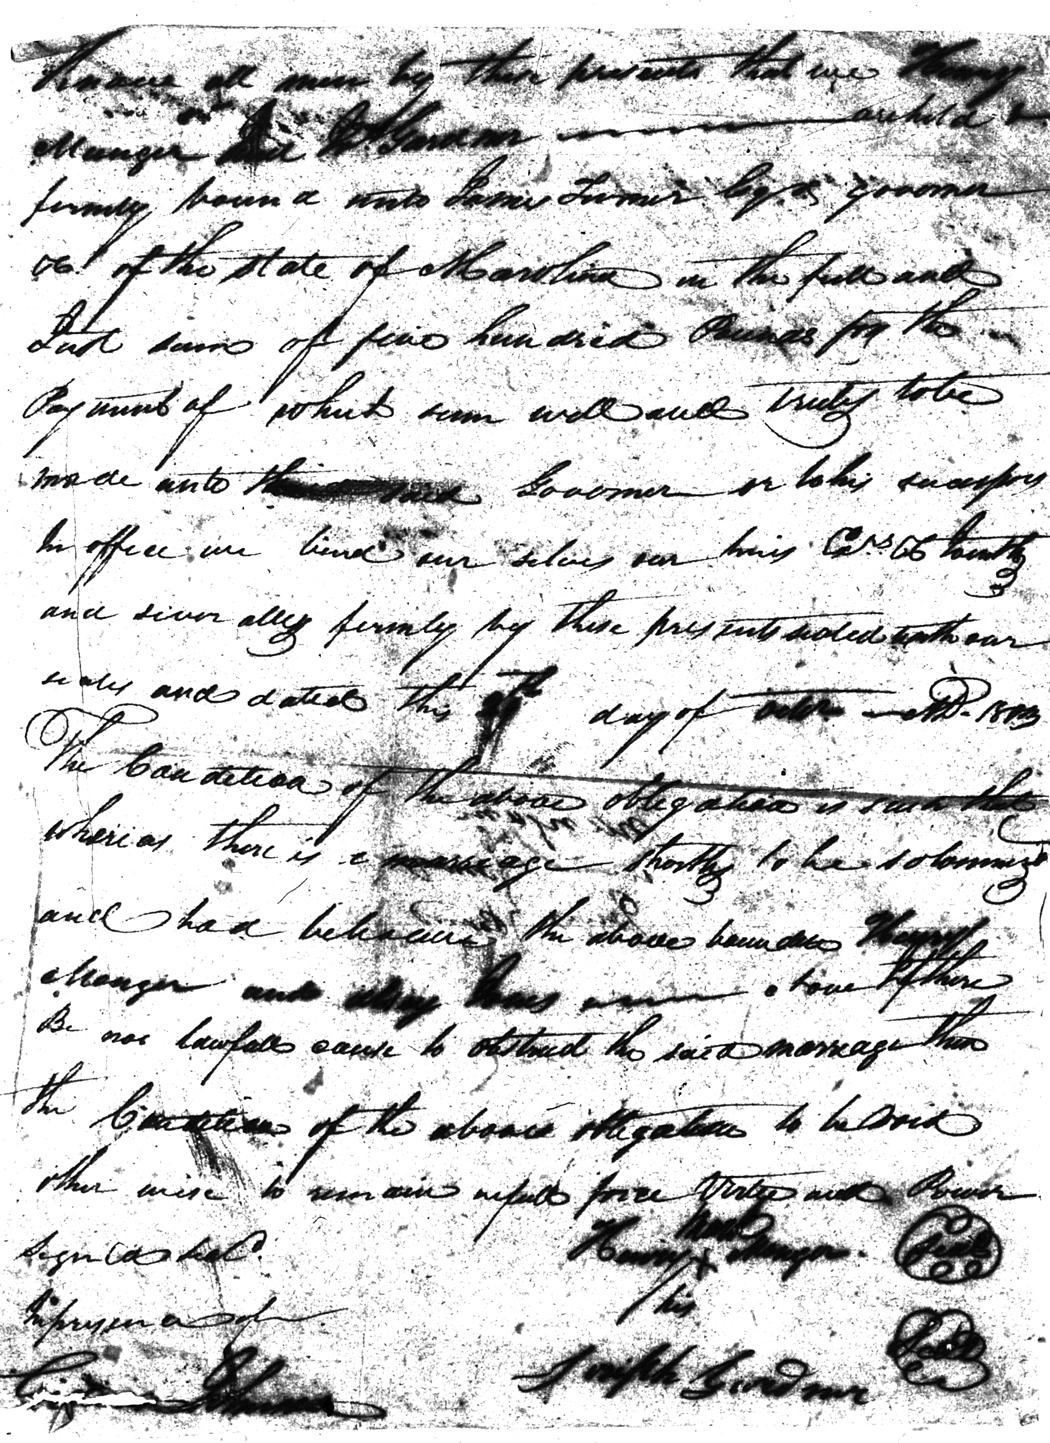 Knowe all men by these presents that we Henry
Monger and Js Gardner are held &
firmly bound unto James Turner Esqr governer
&c. of the state of N Carolina in the full and
Just sum of five hundred Pounds for the
Payment of which sum well and truly to be
made unto the said Governer or to his sucessors
In office we bind our selves our heirs Exrs &c Jointly
and severally firmly by these presents sealed with our
seales and dated this day of AD. 1803
The Condition of the above obligation is such that
wherias there is a marriage shortly to be solomnized
and had between the above bounden Henry
Monger and above If there
Be noe lawfull cause to obstruct the said marriage then
the Condition of the above obligation to be void
other wise to remain in full force Virtue and Power
Signed seald.
In presence of
Henry X Monger seal
his mark
Joseph Gardner seal